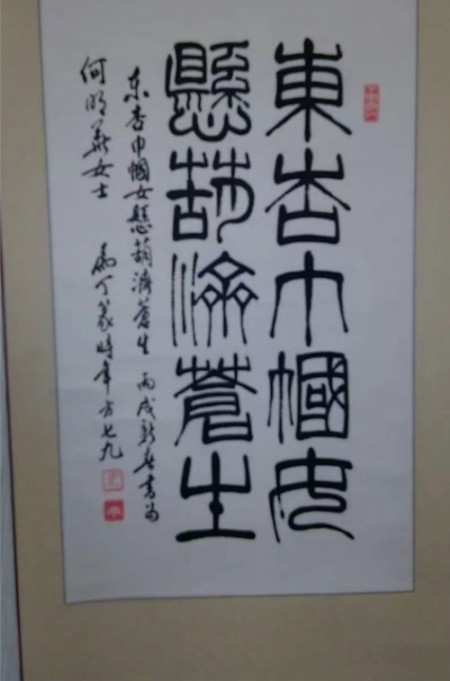 東杏巾幗女
懸葫濟蒼生
东杏巾幗女懸葫濟蒼生 丙戌新春書为
何明 女士 丁篆時年方七九